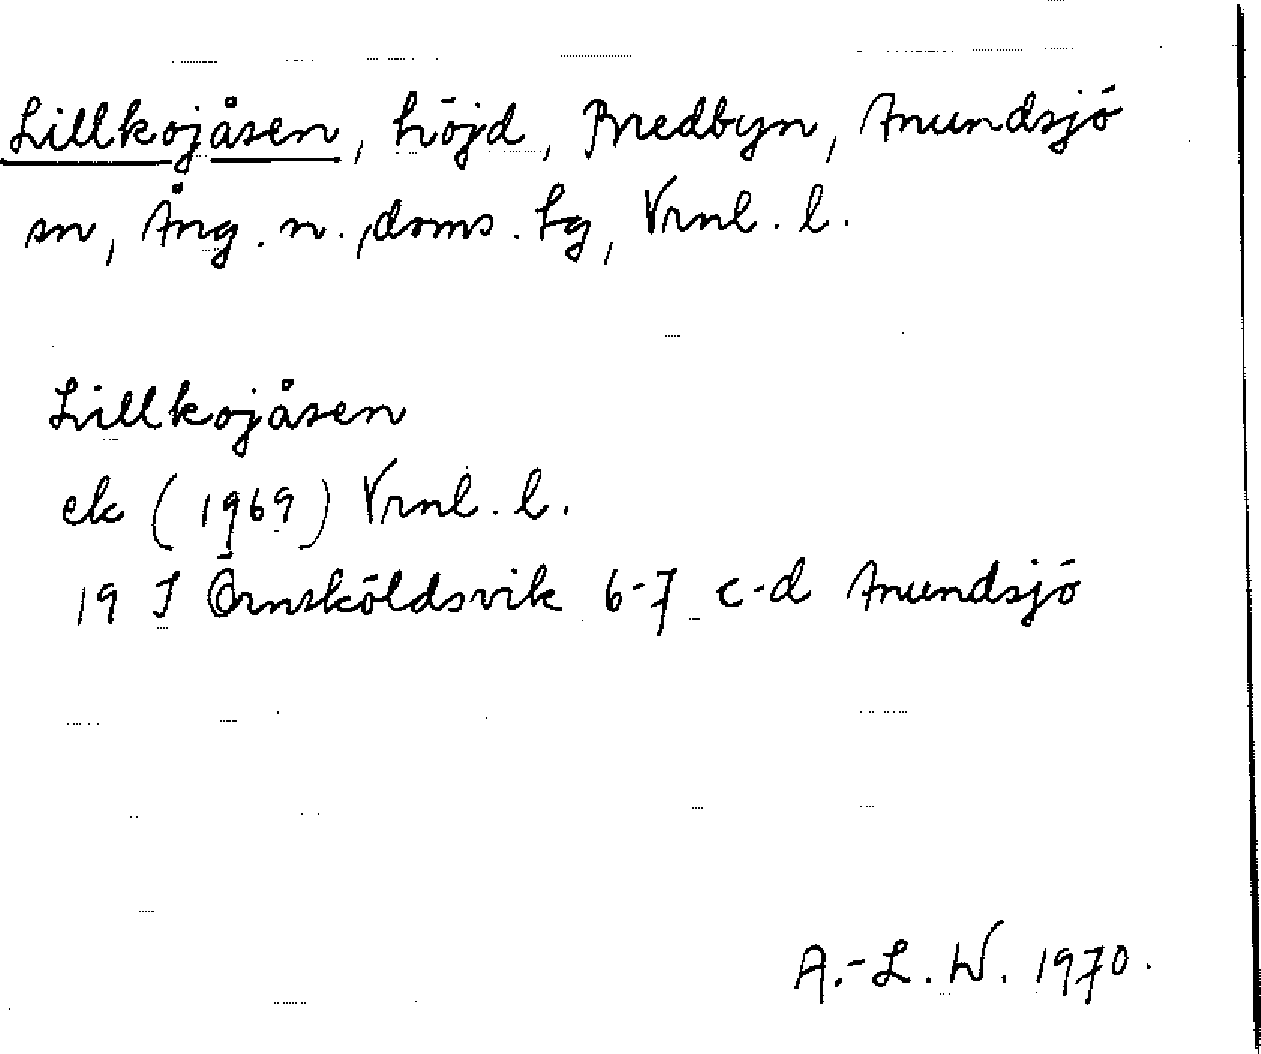 Lillkojåsen, höjd, Bredbyn, Anundsjö
sn, Ång. n., doms. lg, Vrnl. l.
Lillkojåsen
ek (1969) Vrnl. l.
19 I Örnsköldsvik 6-7 c-d Anundsjö
A.-L. W. 1970.